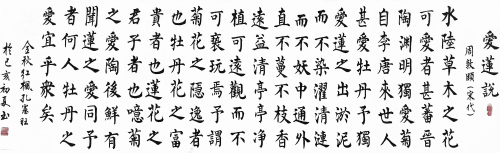 愛蓮說
周敦頤(宋代)
水陸草木之花
可愛者甚蕃晉
陶淵明獨愛菊
自李唐來世人
甚愛牡丹予獨
愛蓮之出淤泥
而不染濯清漣
而不妖中通外
直不蔓不枝香
遠益清亭亭淨
植可遠觀而不
可褻玩焉予謂
菊花之隱逸者
也牡丹花之富
貴者也蓮花之
君子者也噫菊
之愛陶後鮮有
聞蓮之愛同予
者何人牡丹之
愛宜乎眾矣
於己亥初夏